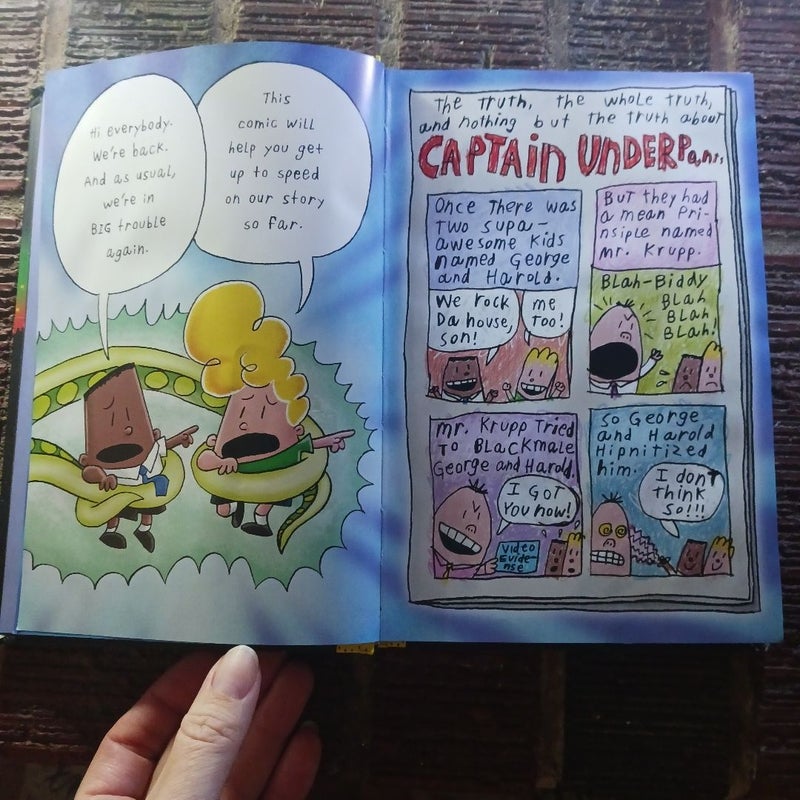 Hi everybody.
We're back.
And as usual,
we're in
BIG trouble
again.
This
comic will
help you get
up to speed
on our story
so far.
The truth, the whole truth,
and nothing but the truth about
CAPTAIN UNDERPants
Once there was
two supa-
awesome kids
named George
and Harold.
We rock
Da house,
son!
me
too!
But they had
a mean Pri-
nsiple named
mr. Krupp.
BLah-Biddy
BLah
BLah
BLah!
mr. Krupp Tried
to BLackmale
George and Harold.
I Got
You now!
Video
Evide-
nse
So George
and Harold
Hipnitized
him.
I dont
think
so!!!